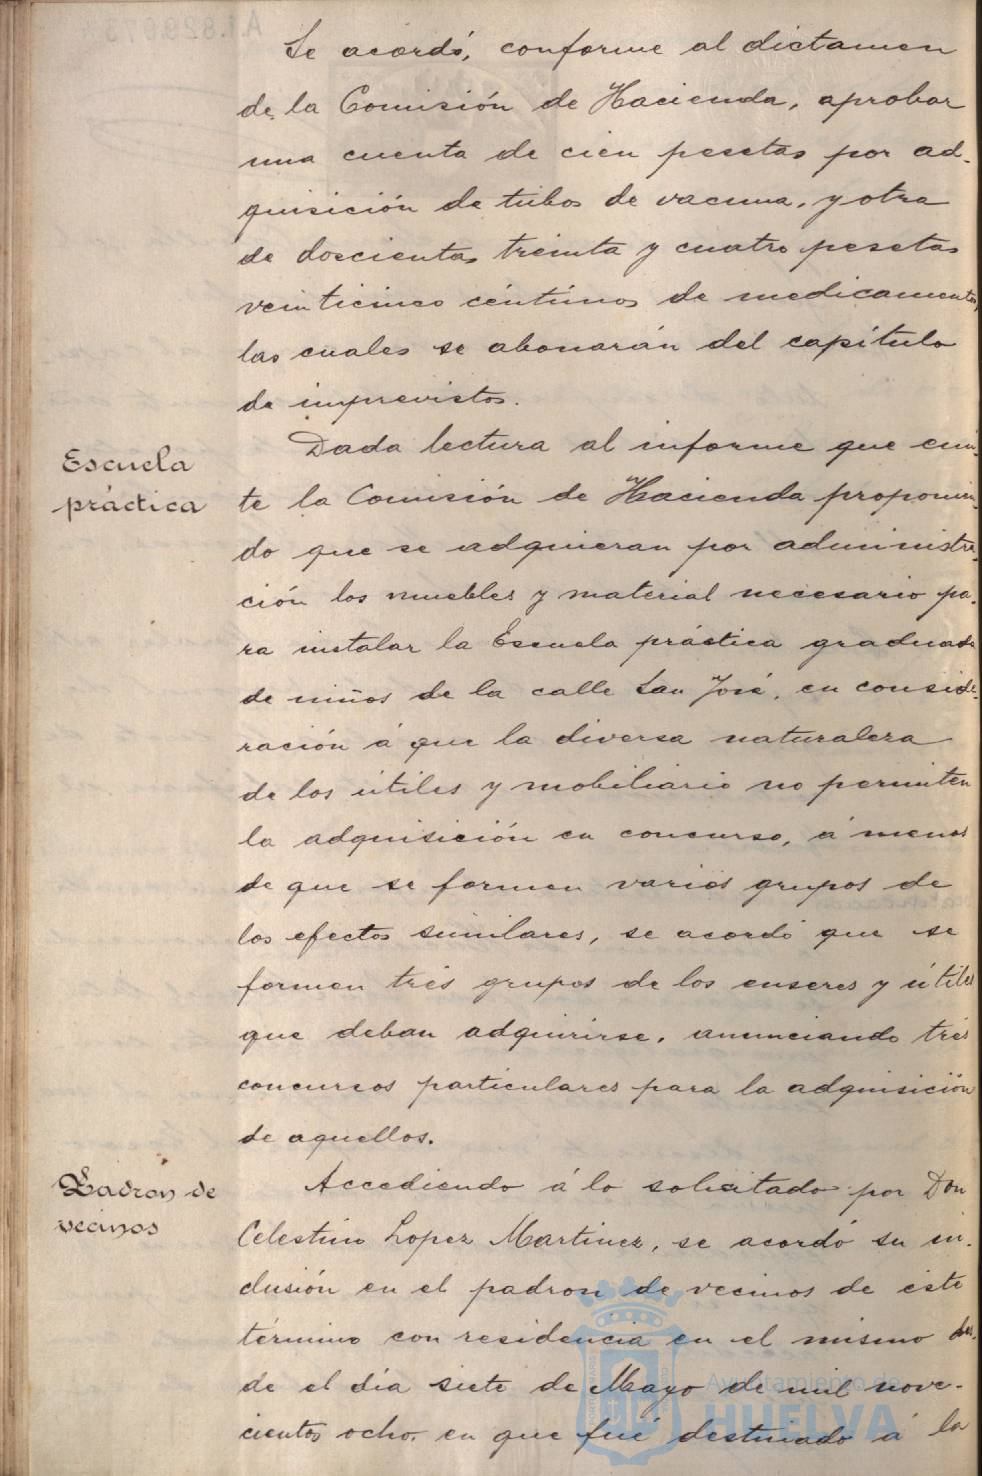 Se acordó, conforme al dictamen
de la Comisión de Hacienda, aprobar
una cuenta de cien pesetas por ad-
quisición de tubos de vacuna, y otra
de doscientas treinta y cuatro pesetas
veinticinco céntimos de medicamentos,
las cuales se abonarán del capítulo
de imprevistos.
Escuela
práctica
Dada lectura al informe que emi-
te la Comisión de Hacienda proponien-
do que se adquieran por administra-
ción los muebles y material necesario pa-
ra instalar la Escuela práctica graduada
de niños de la calle San José, en conside-
ración á que la diversa naturaleza
de los útiles y mobiliario no permiten
la adquisición en concurso, á menos
de que se formen varios grupos de
los efectos similares, se acordó que se
formen trés grupos de los enseres y útiles
que deban adquirirse, anunciando trés
concursos particulares para la adquisición
de aquellos.
Padron de
vecinos
Accediendo á lo solicitado por Don
Celestino Lopez Martinez, se acordó su in-
clusión en el padron de vecinos de este
término con residencia en el mismo des-
de el día siete de Mayo de mil nove-
cientos ocho, en que fué destinado á la
Ayuntamiento de
HUELVA